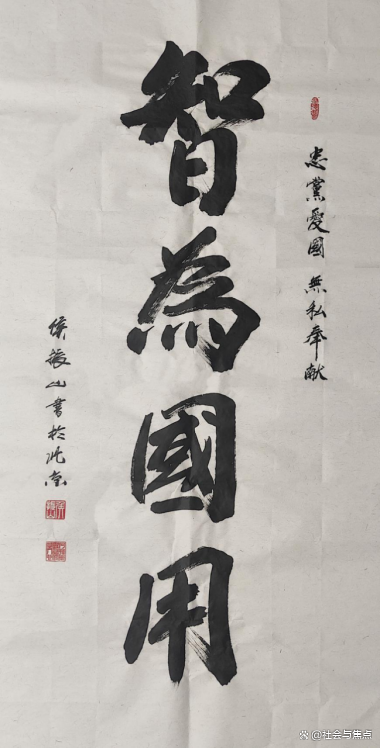 忠黨愛國 無私奉献
智為國用
侯振山書於北京
@社会与焦点